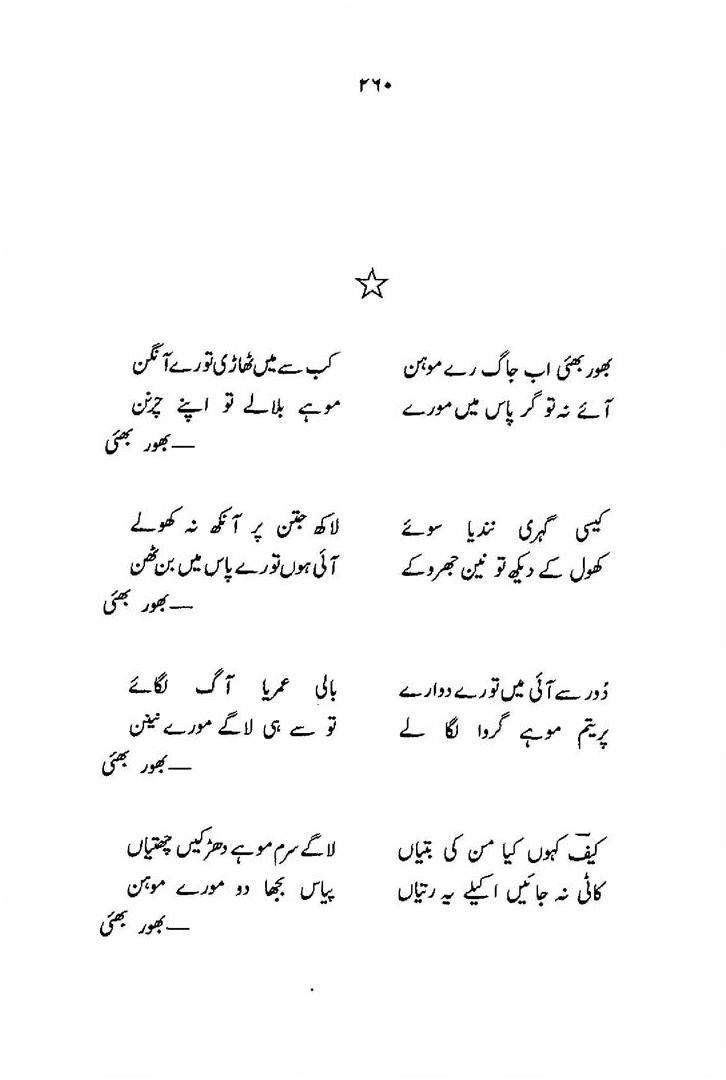 ۲۶۰
بھور بھئی اب جاگ رے موہن کب سے میں ٹھاڑی تورے آنگن
آئے نہ تو گر پاس میں مورے موہے بلا لے تو اپنے چرنن
—بھور بھئی
کیسی گہری نندیا سوئے لاکھ جتن پر آنکھ نہ کھولے
کھول کے دیکھ تو نین جھروکے آئی ہوں تورے پاس میں بن ٹھن
—بھور بھئی
دُور سے آئی میں تورے دوارے بالی عمریا آگ لگائے
پریتم موہے گروا لگا لے تو سے ہی لاگے مورے نینن
—بھور بھئی
کیفؔ کہوں کیا من کی بتیاں لاگے سرم موہے دھڑکیں چھتیاں
کاٹی نہ جائیں اکیلے یہ رتیاں پیاس بجھا دو مورے موہن
—بھور بھئی